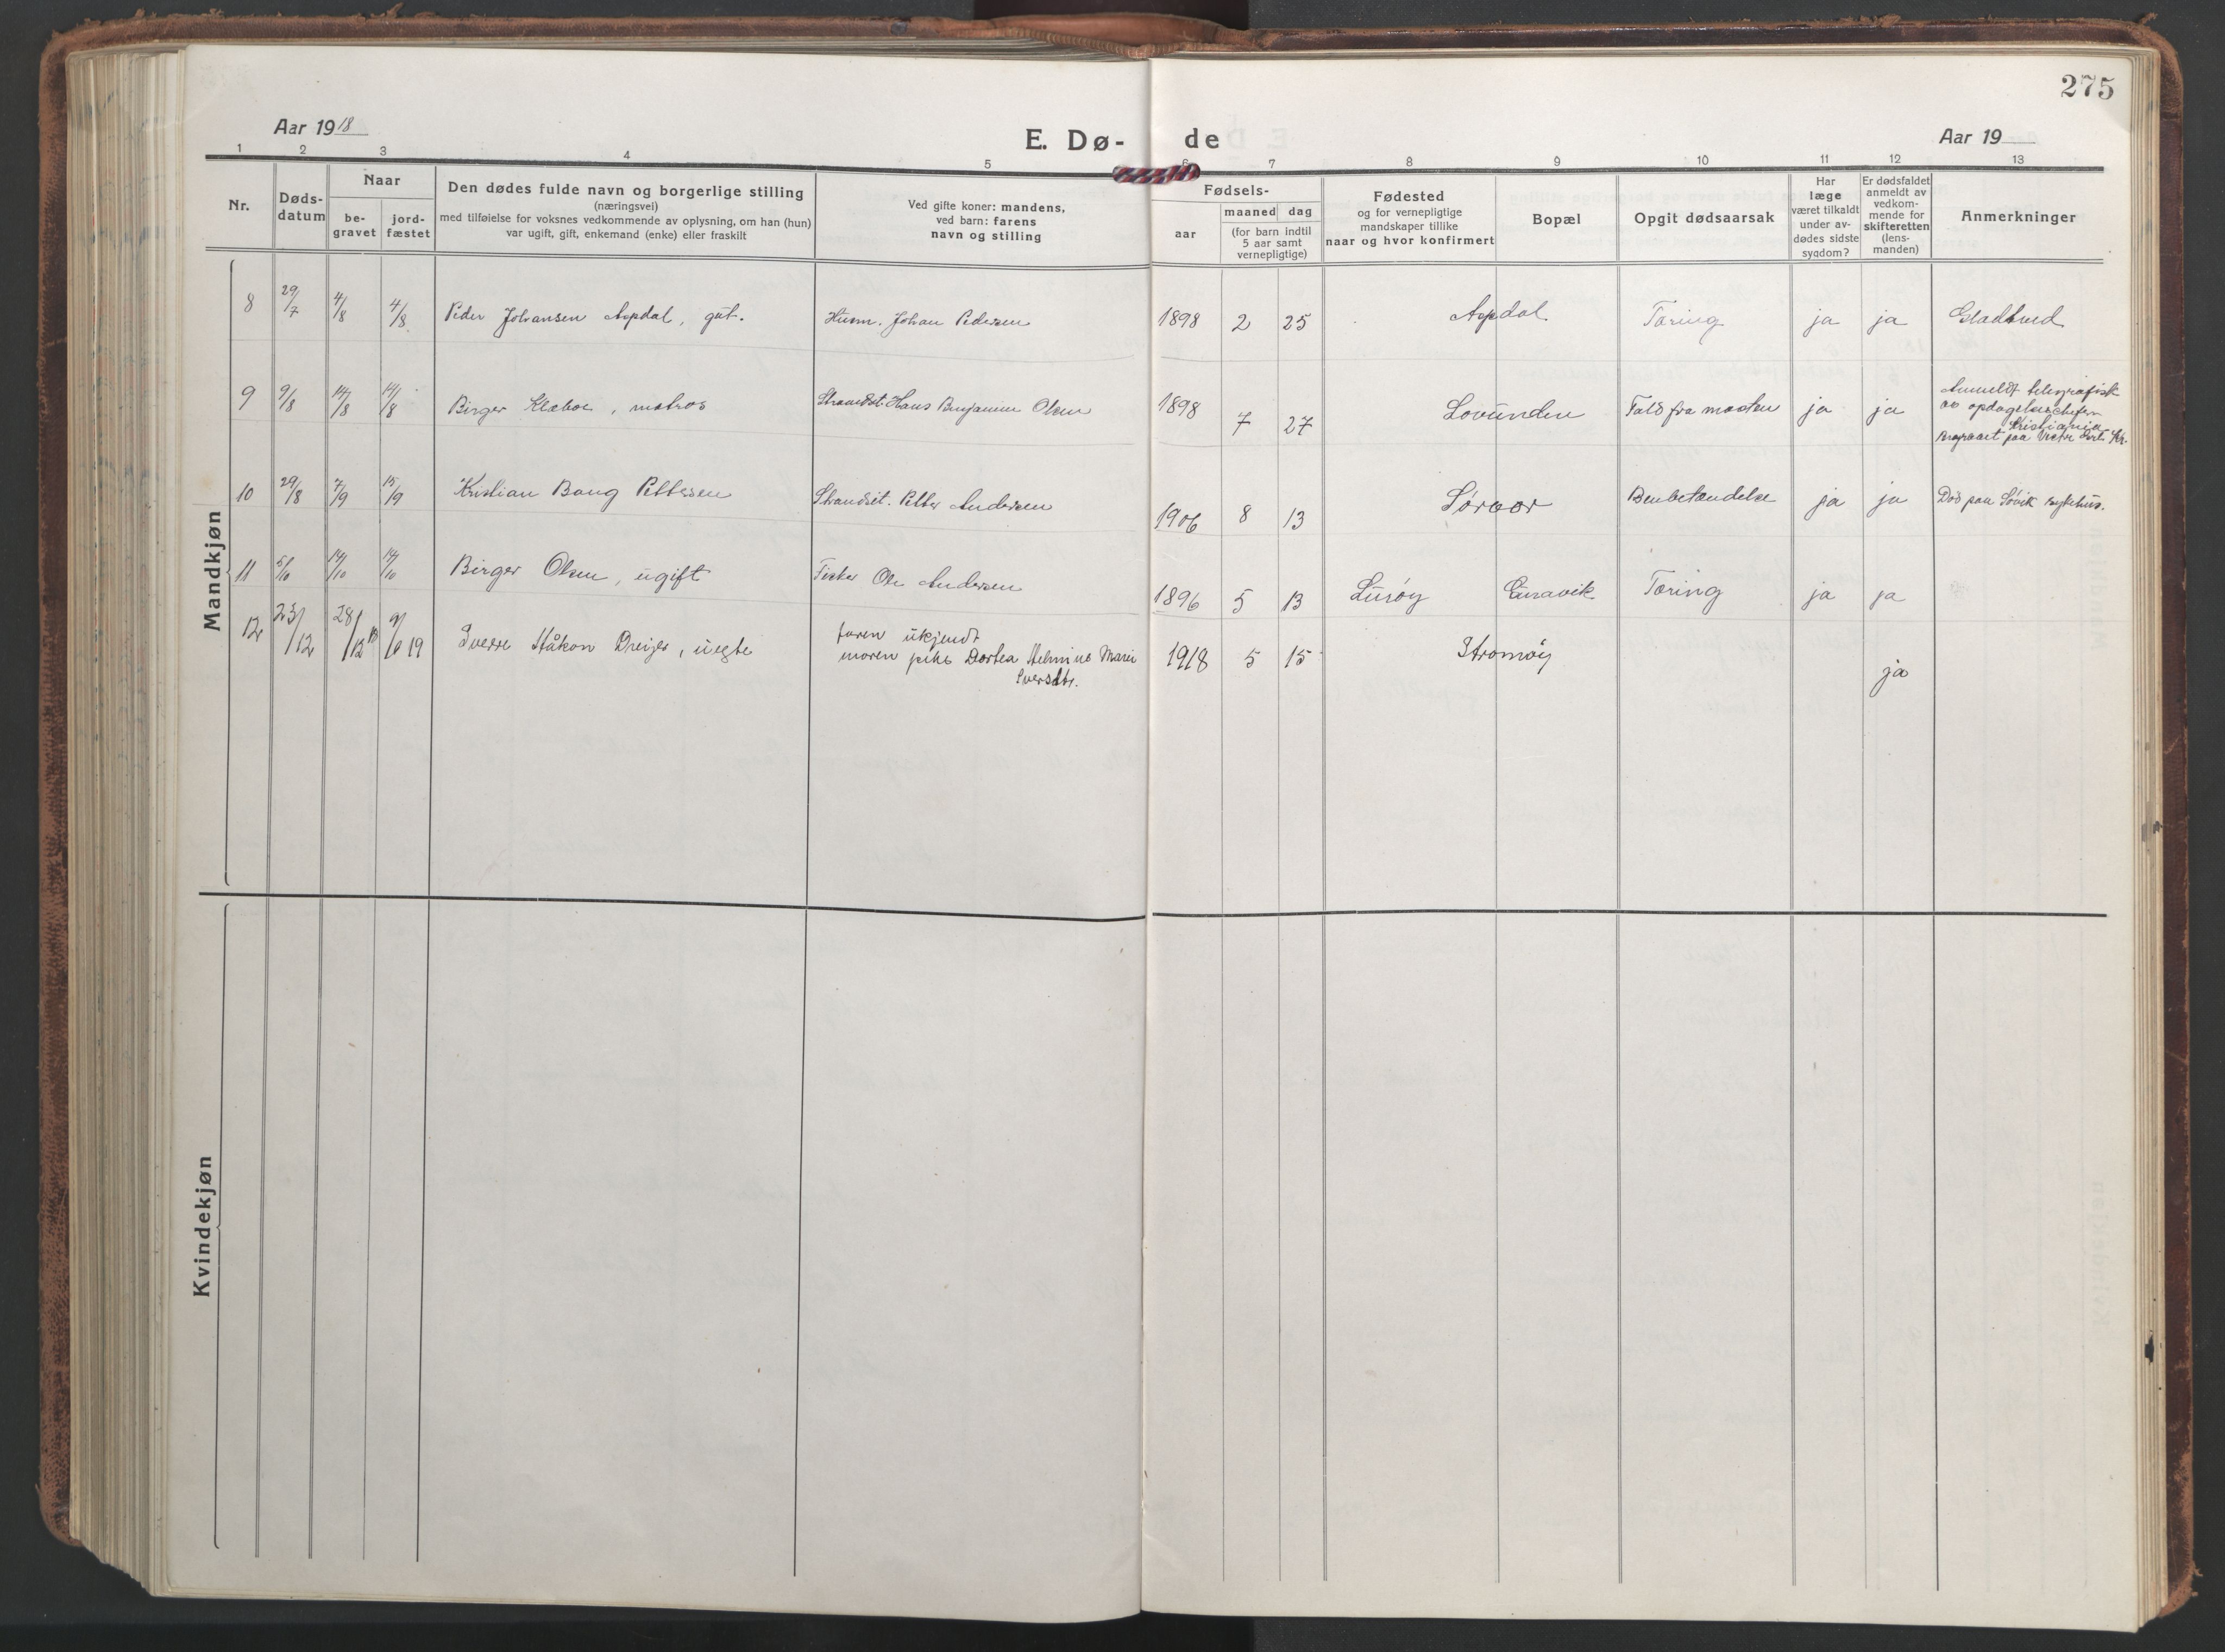 275
Aar 1918
E. Dø- de
Aar 19
1 2 3 4 5 6 7 8 9 10 11 12 13
Nr.
Døds-
datum
Naar
be-
gravet
jord-
fæstet
Den dødes fulde navn og borgerlige stilling
(næringsvei)
med tilføielse for voksnes vedkommende av oplysning, om han (hun)
var ugift, gift, enkemand (enke) eller fraskilt
Ved gifte koner: mandens,
ved barn: farens
navn og stilling
Fødsels-
aar
maaned dag
(for barn indtil
5 aar samt
vernepligtige)
Fødested
og for vernepligtige
mandskaper tillike
naar og hvor konfirmert
Bopæl
Opgit dødsaarsak
Har
læge
været tilkaldt
under av-
dødes sidste
sygdom?
Er dødsfaldet
anmeldt av
vedkom-
mende for
skifteretten
(lens-
manden)
Anmerkninger
Mandkjøn
8 29/7 4/8 4/8 Peder Johansen Aspdal, gut. Husm. Johan Pedersen 1898 2 25 Aspdal Tæring ja ja
9 9/8 14/8 14/8 Birger Klæboe, matros Strandst. Hans Benjamin Olsen 1898 7 27 Lovunden Fald fra masten ja ja Anmeldt telegrafisk
av opdagelseschefen
Kristiania
10 29/8 7/9 15/9 Kristian Bang Pettersen Strandsit. Petter Andersen 1906 8 13 Sørvær Benbetændelse ja ja Død paa Søvik sykehus.
11 5/10 14/10 14/10 Birger Olsen, ugift Fisker Ole Andersen 1896 5 13 Lurøy Tæring ja ja
12 23/12 28/12 18 9/6 19 Sverre Håkon Dreyer, uegte faren ukjendt
moren pike Dortea Helmine Marie
Sversdtr.
1918 5 15 Stromøy ja
Kvindekjøn